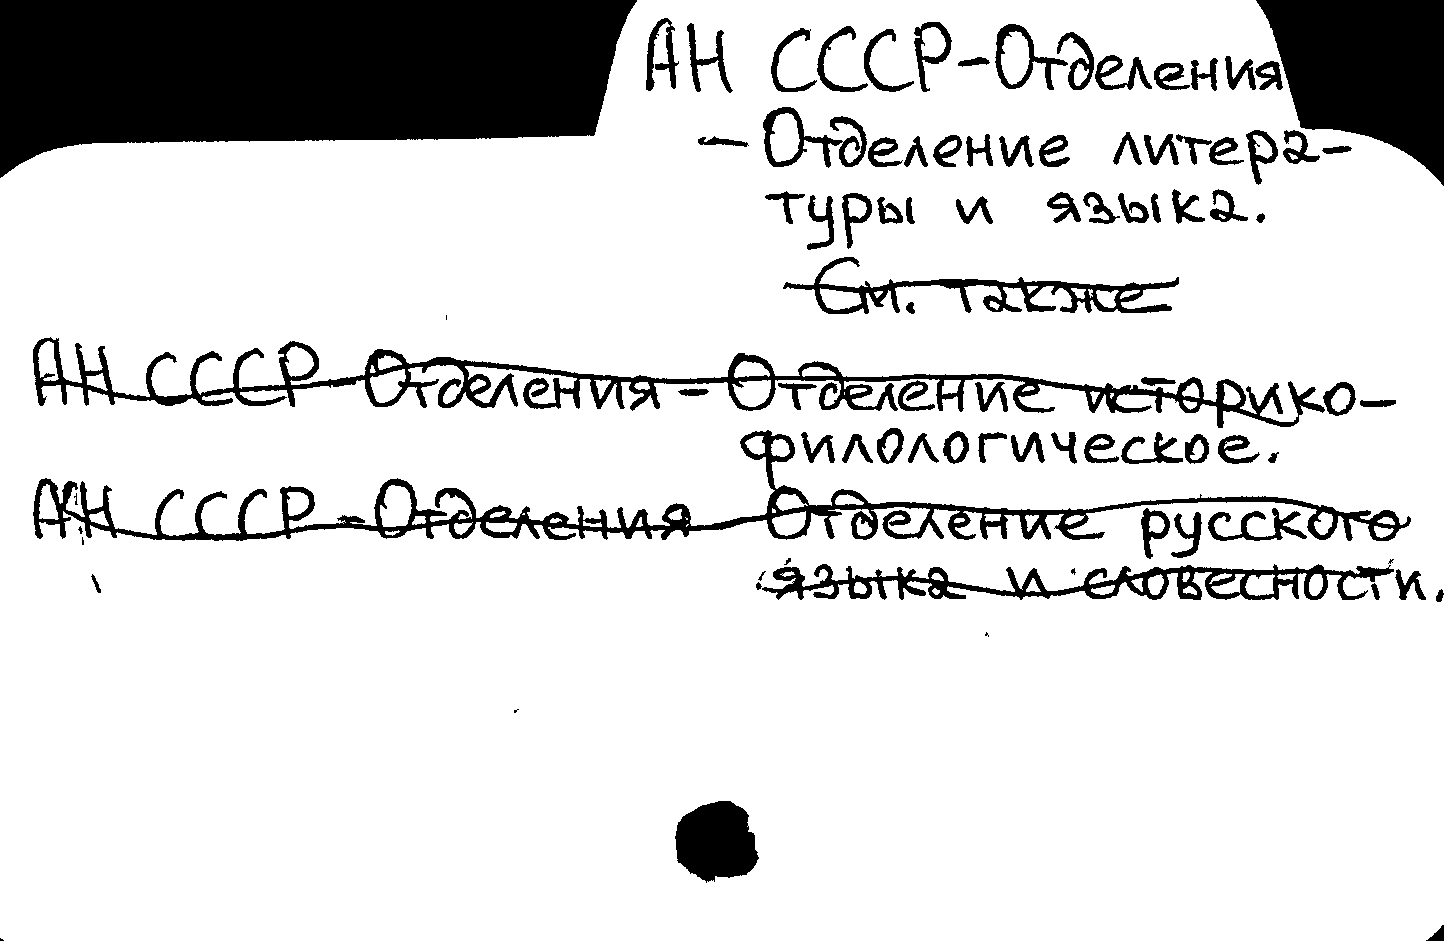 АН СССР-Отделения
- Отделение литера-
туры и языка.
См. также
АН СССР-Отделения - Отделение историко-
филологическое.
АН СССР-Отделения Отделение русского
языка и словесности.